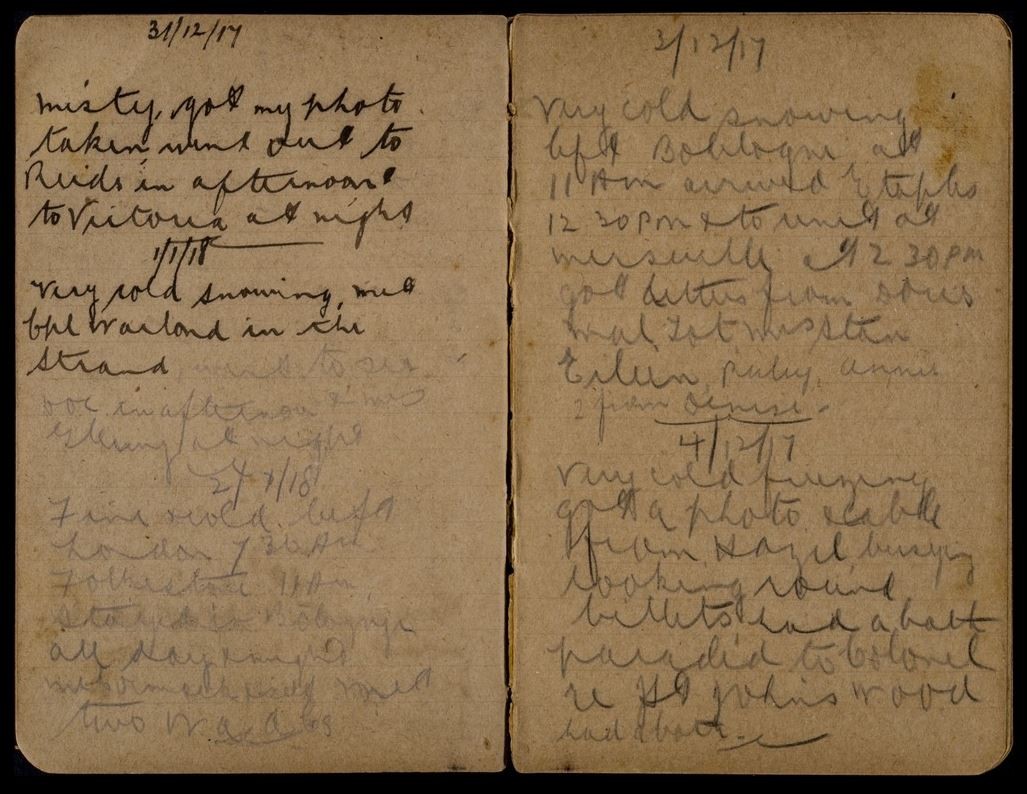 31/12/17
misty, got my photo
taken, went out to
Reids in afternoon &
to Victoria at night
1/1/18
Very cold snowing, met
Cpl Warland in the
Strand, went to see
Doc in afternoon & Mrs
at night
2/1/18
Fine & cold left
London 7 30 AM
Folkestone 11 AM
Stayed in Bologne
all day & night
met
two W.A.A.Cs
3/12/17
Very cold snowing
left Bohlogne at
11 AM arrived Etaples
12 30 PM & to unit at
at 2 30 PM
got letters from Doris
Mal, Tot Miss
Eileen, Ruby, Annie
2 from Denise
4/12/17
Very cold freezing
got a photo & cable
from Hazel busy
looking round
billets had a batt
parade to Colonel
re St Johns Wood
had a bath.